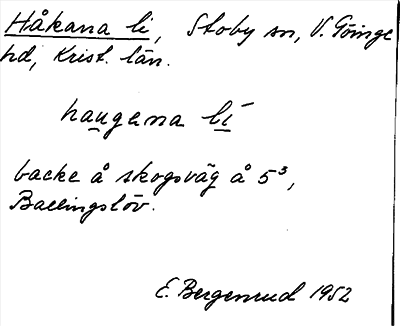 Håkana li, Stoby sn, V. Göinge
hd, Krist. län.
haugana li
backe å skogsväg å 5³,
Ballingslöv.
E. Bergenrud 1952